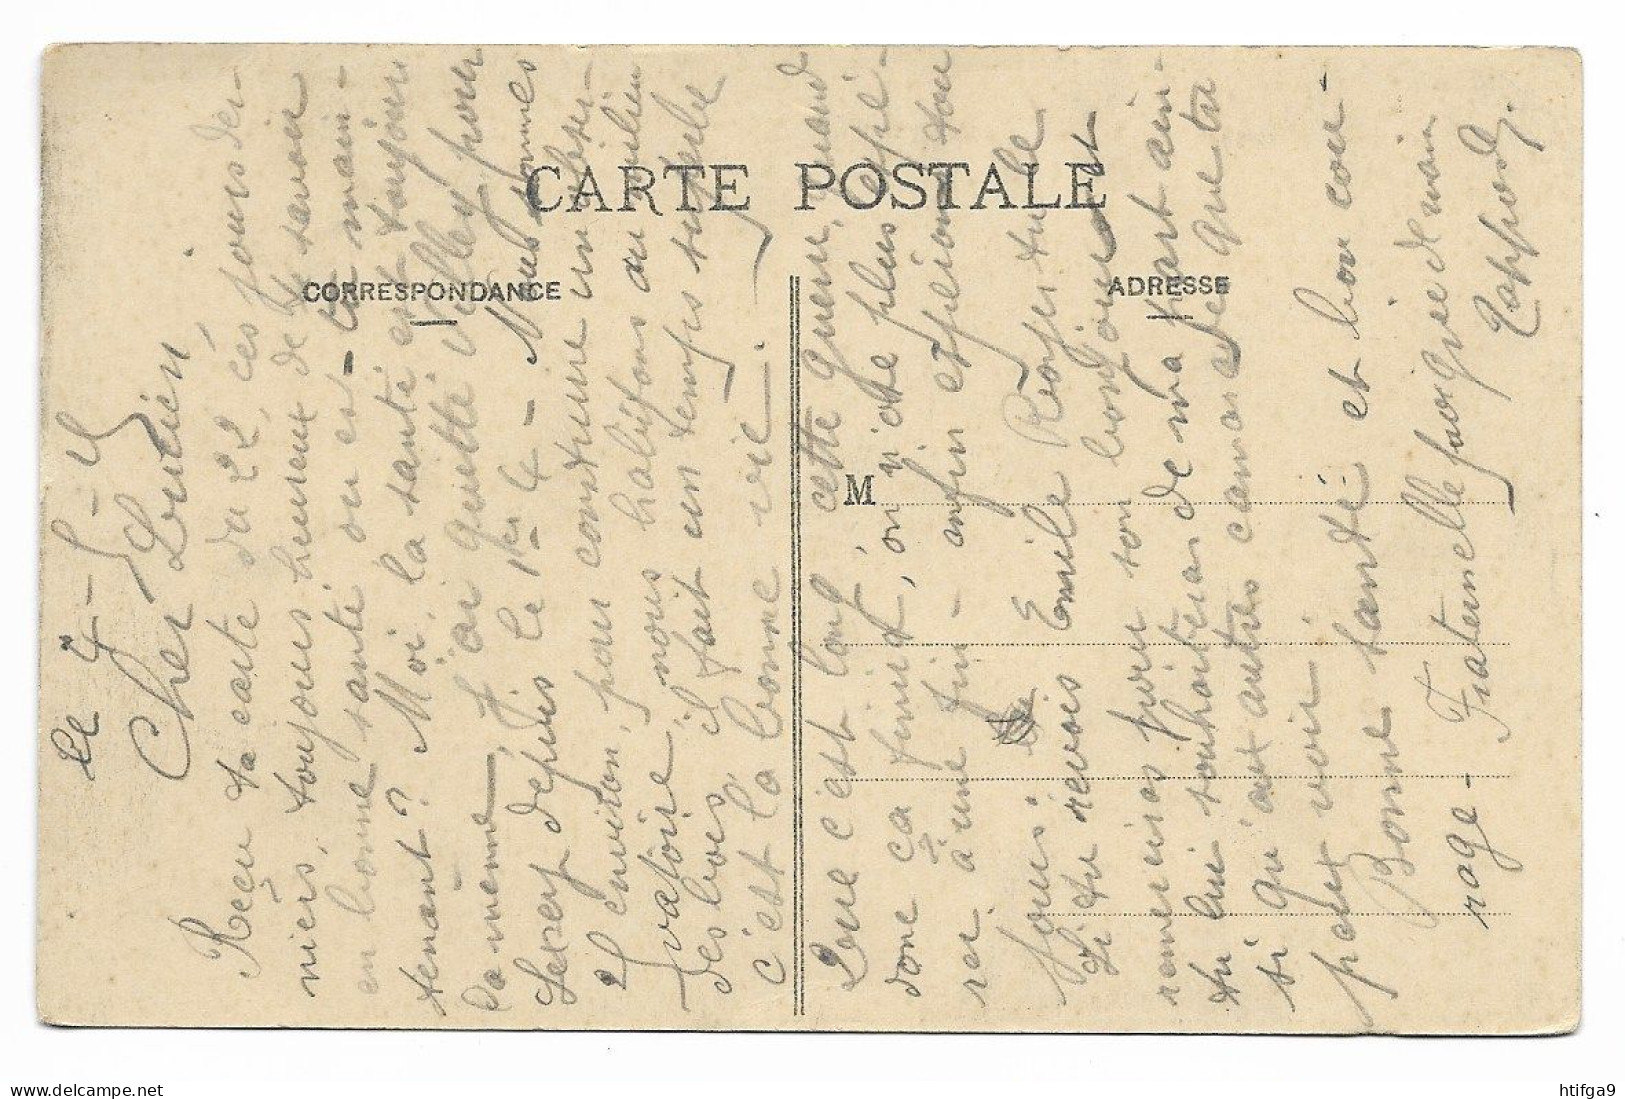 CARTE POSTALE
CORRESPONDANCE
ADRESSE
M
Le 4 - 5 -
Cher Lucien,
Reçu ta carte du 22, ces jours der-
niers, toujours heureux de te savoir
en bonne santé ou est-tu main-
tenant? Moi, la santé est toujours
la même, j'ai quitté pour
depuis le 1er 4 - Nous sommes
environ, pour construire un obser-
vatoire, nous habitons au milieu
des bois, il fait un temps superbe
c'est la bonne vie.
Que c'est long, cette guerre, quand
donc ça finira, on n'ose plus espé-
rer à une fin - enfin espérons tou
jours.
Si tu revois Emile Rouget tu le
remercieras pour son bonjour et
tu lui souhaiteras de ma part ain-
si qu'aux autres camarades que tu
peux voir.
Bonne santé et bon cou-
rage - Fraternelle poignée de main
htifga9